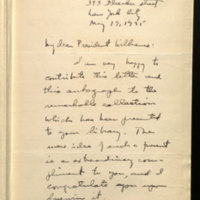 393 Bleecker Street
New York City
May 17, 1935
My dear President Williams:
I am very happy to
contribute this letter and
this autograph to the
remarkable collection
which has been presented
to your library. The
mere idea of such a present
is a extraordinary com-
pliment to you, and I
congratulate you upon
deserving it.